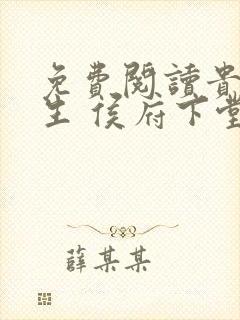 免費閱讀貴
生 侯府下堂
薛某某